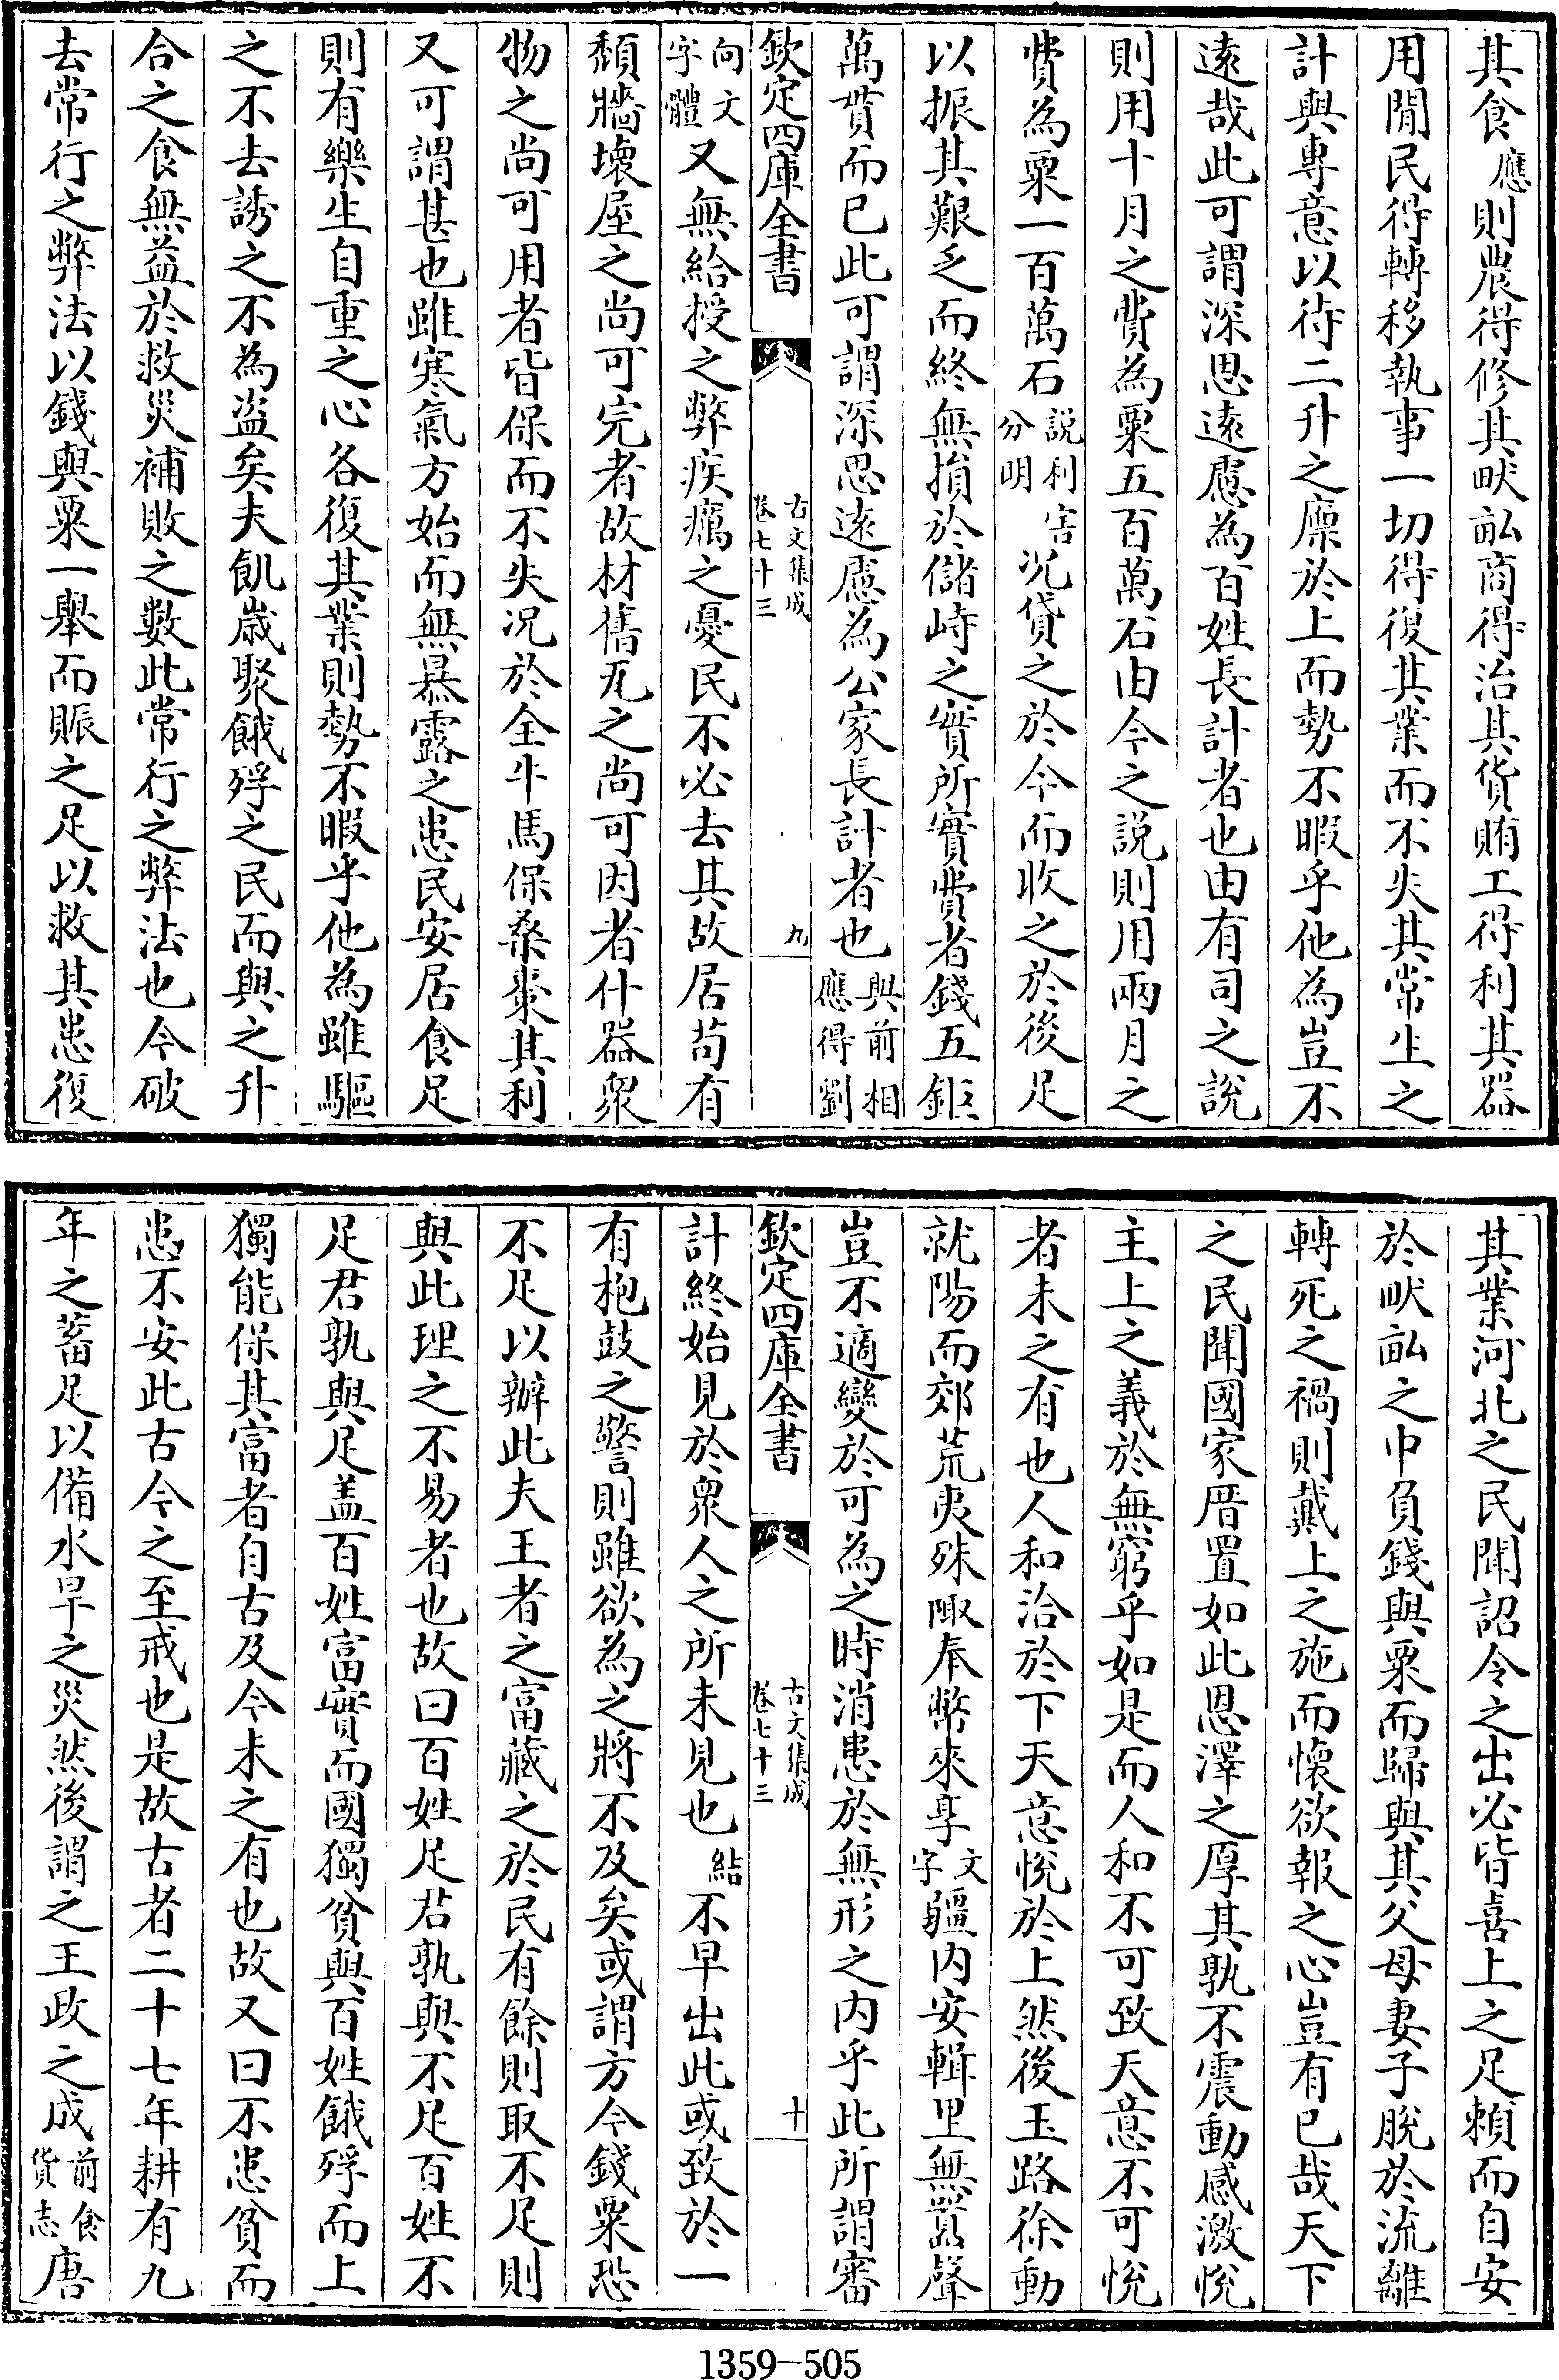 其食應則農得修其畎畝商得治其貨賄工得利其器
用閒民得轉移執事一切得復其業而不失其常生之
計與專意以待二升之廪於上而勢不暇乎他為豈不
遠哉此可謂深思遠慮為百姓長計者也由有司之說
則用十月之費為粟五百萬石由今之說則用兩月之
費為粟一百萬石説利害分明况貸之於今而收之於後足
以振其艱乏而終無損於儲峙之實所實費者錢五鉅
萬貫而已此可謂深思遠慮為公家長計者也與前相應得劉
欽定四庫全書 古文集成 卷七十三 九
向文字體又無給授之弊疾癘之憂民不必去其故居苟有
頹牆壞屋之尚可完者故材舊瓦之尚可因者什器衆
物之尚可用者皆保而不失况於全牛馬保桑棗其利
又可謂甚也雖寒氣方始而無暴露之患民安居食足
則有樂生自重之心各復其業則勢不暇乎他為雖驅
之不去誘之不為盗矣夫飢歳聚餓殍之民而與之升
合之食無益於救災補敗之數此常行之弊法也今破
去常行之弊法以錢與粟一舉而賑之足以救其患復
其業河北之民聞詔令之出必皆喜上之足賴而自安
於畎畝之中負錢與粟而歸與其父母妻子脫於流離
轉死之禍則戴上之施而懷欲報之心豈有已哉天下
之民聞國家厝置如此恩澤之厚其孰不震動感激悅
主上之義於無窮乎如是而人和不可致天意不可悅
者未之有也人和洽於下天意悅於上然後玉路徐動
就陽而郊荒夷殊陬奉幣來享文字疆内安輯里無嚚聲
豈不適變於可為之時消患於無形之内乎此所謂審
欽定四庫全書 古文集成 卷七十三 十
計終始見於衆人之所未見也結不早出此或致於一
有枹鼓之警則雖欲為之將不及矣或謂方今錢粟恐
不足以辦此夫王者之富藏之於民有餘則取不足則
與此理之不易者也故曰百姓足君孰與不足百姓不
足君孰與足盖百姓富實而國獨貧與百姓餓殍而上
獨能保其富者自古及今未之有也故又曰不患貧而
患不安此古今之至戒也是故古者二十七年耕有九
年之蓄足以備水旱之災然後謂之王政之成前食貨志唐
1359-505